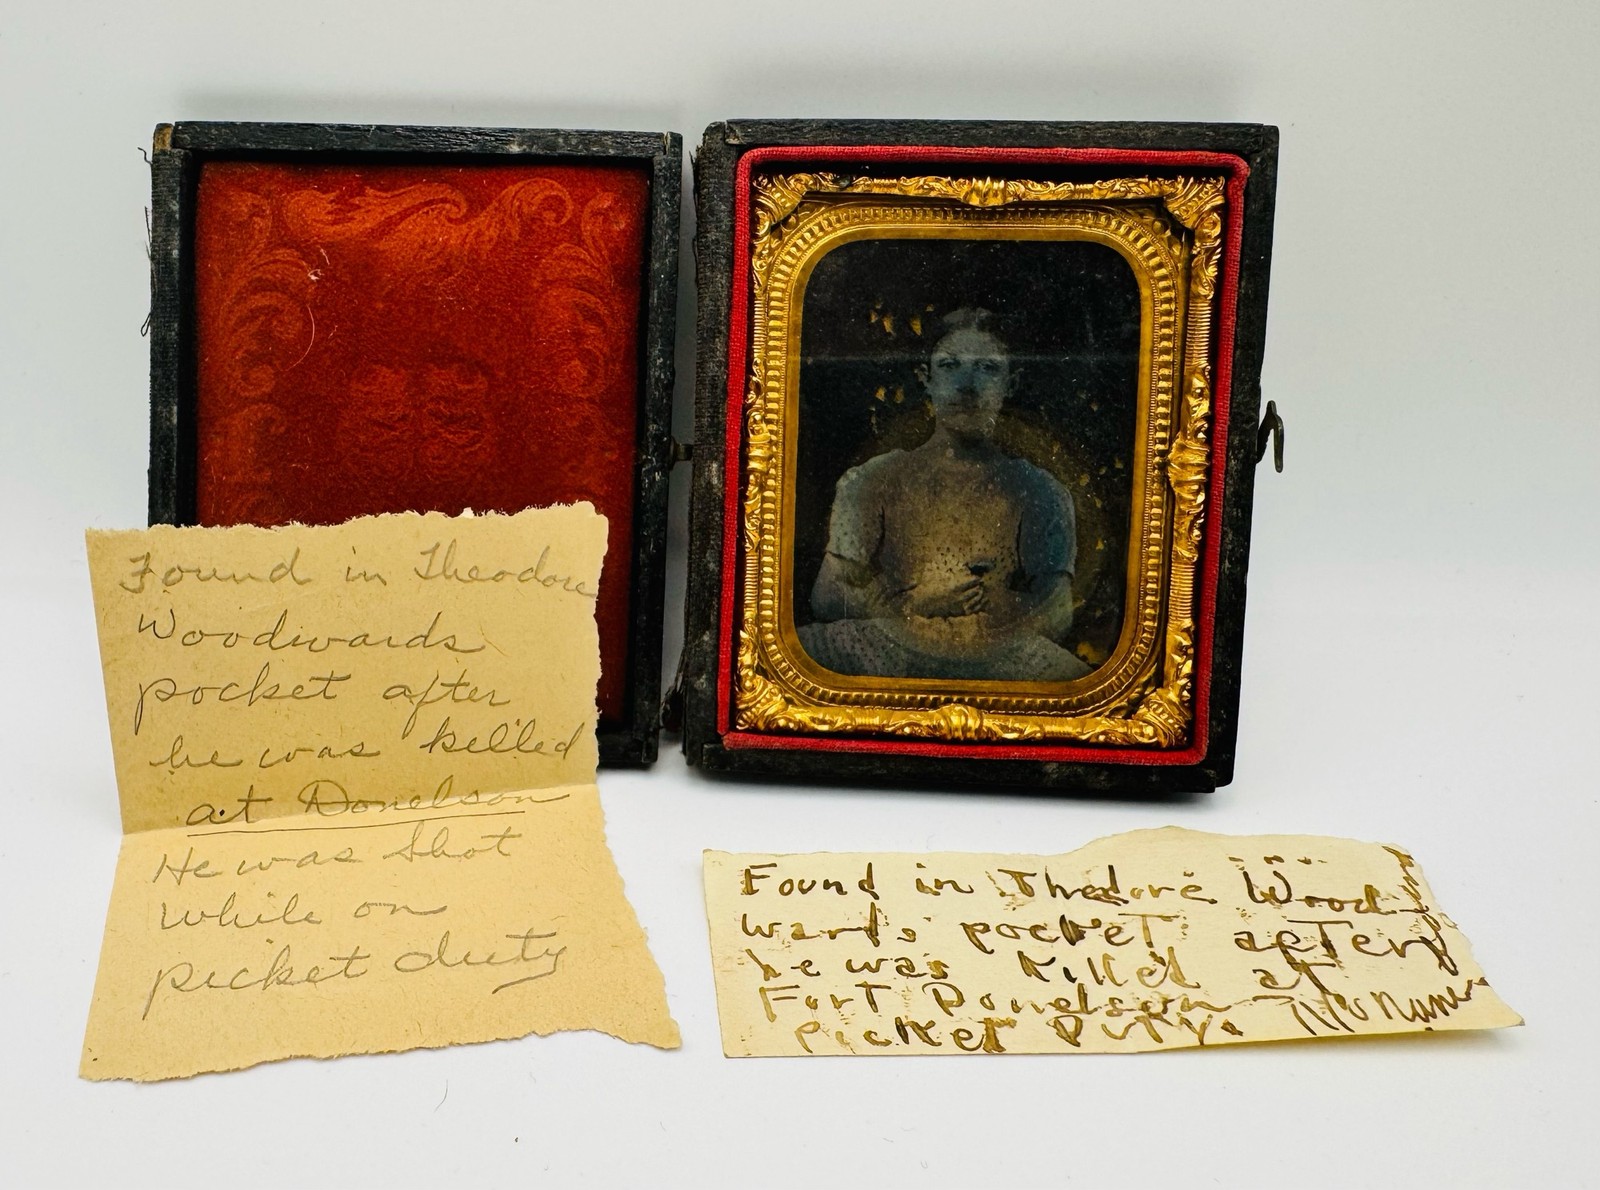 Found in Theodore
Woodwards
pocket after
he was killed
at Donelson
He was shot
while on
picket duty
Found in Theodore Wood-
wards pocket after
he was killed at
Fort Donelson
picket Duty. No Name